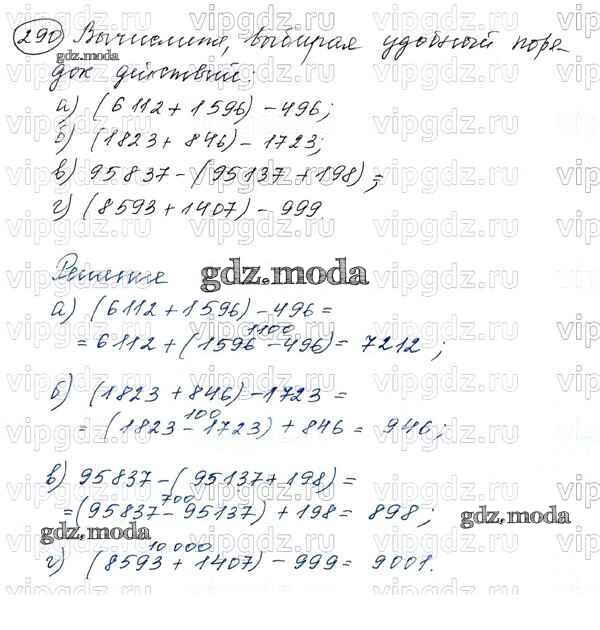 290 Вычислите, выбирая удобный поря-
gdz.moda
док действий:
а) (6112 + 1596) - 496;
б) (1823 + 846) - 1723;
в) 95837 - (95137 + 198);
г) (8593 + 1407) - 999.
Решение gdz.moda
а) (6112 + 1596) - 496 =
1100
= 6112 + (1596 - 496) = 7212;
б) (1823 + 846) - 1723 =
100
= (1823 - 1723) + 846 = 946;
в) 95837 - (95137 + 198) =
700
= (95837 - 95137) + 198 = 898;
gdz.moda gdz.moda
10 000
г) (8593 + 1407) - 999 = 9001.
vipgdz.ru